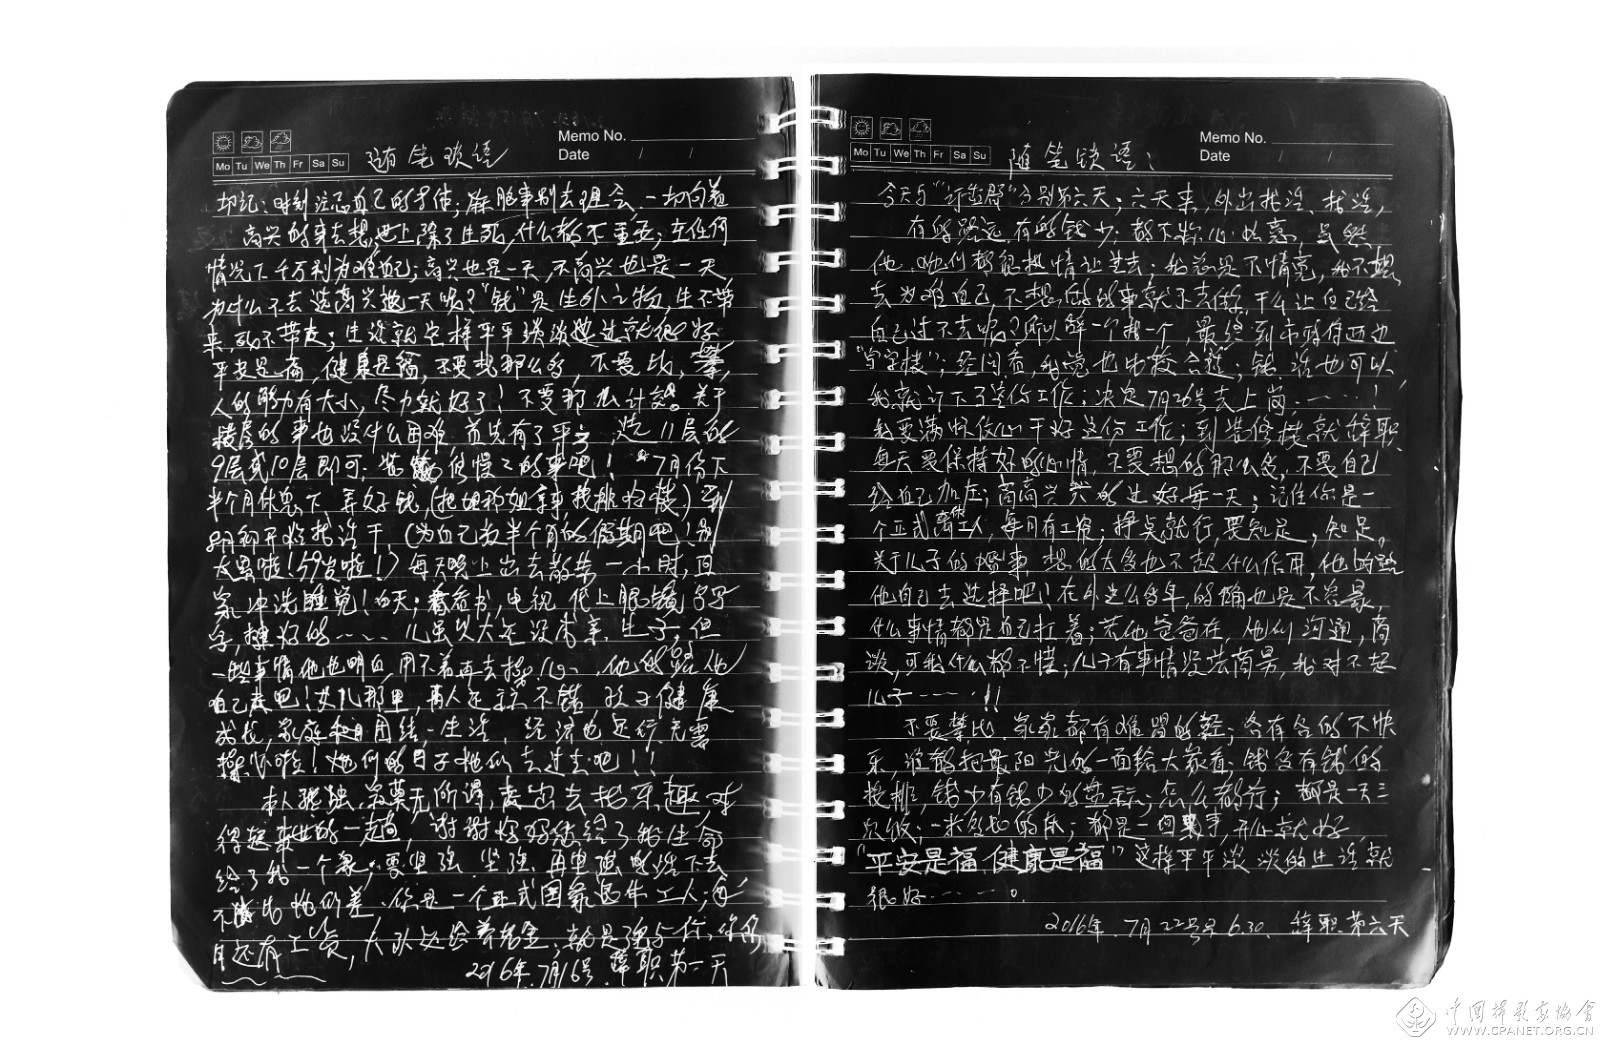 Memo No.
Date / /
Mo Tu We Th Fr Sa Su
随笔琐语
切记：时刻注意自己的身体；麻脱事别去理会，一切向着
高兴的事去想，世上除了生死，什么都不重要；在任何
情况下千万别为难自己；高兴也是一天，不高兴也是一天，
为什么不去选高兴过一天呢？“钱”是生外之物，生不带
来，死不带走；生活就这样平平淡淡地过就很好
平安是福，健康是福，不要想那么多，不要比，攀，
人的能力有大小，尽力就好了！不要那么计较。关于
楼房的事也没什么困难，首先有了平方，选11层的
9层或10层即可．装 很慢之的事吧！“7月份下
半个月休息下，弄好钱，(把 ) 到
8月初开始找活干，(为自己放半个月的假期吧！别
太累啦！59岁啦！) 每天晚上出去散步一小时，回
家冲洗睡觉！白天；看看书，电视，
字，挺好的……儿虽然大还没有事，生子，但
一些事情他也明白，用不着再去操心，他的路他
自己走吧！女儿那里，两人还 不错，孩子健康
成长，家庭和目团结，生活、经济也还行，无需
操心啦！她们的日子她们去过去吧！！
本人孤独，寂莫无所谓，走出去找乐趣，对
得起来世的一趟，谢谢 给了我生命
给了我一个家，要坚强，坚强，再坚强的活下去
不 比她们差，你是一个正式国家退休工人；每
月还有工资，大队还给养老金，
2016年．7月16号．辞职第一天
Memo No.
Date / /
Mo Tu We Th Fr Sa Su
随笔琐语：
今天与“ ”分别第六天；六天来，外出找活、找活，
有的路远，有的钱少；都不称心如意，虽然
他、她们都很热情让过去；我总是不情宽，我不想
去为难自己，不想做的事就不去做，干么让自己给
自己过不去呢？所以辞一个找一个，最终到市 西边
“写字楼”；经问贵，我觉也比较合适；钱、活也可以，
我就订下了这份工作；决定7月26号去上岗……！
我要满怀信心干好这份工作；到装修楼就辞职
每天要保持好的心情，不要想的那么多，不要自己
给自己加压；高高兴兴的过好每一天；记住你是一
个正式离休工人，每月有工资；挣点就行，要知足，知足。
关于儿子的婚事，想的太多也不起什么作用，他的路
他自己去选择吧！在外这么多年，的确也是不容易，
什么事情都是自己扛着；若他爸爸在，他们沟通，商
谈，可我什么都不懂；儿子有事情没法商量，我对不起
儿子……！！
不要攀比，家家都有难唱的经；各有各的不快
乐，谁都把最阳光的一面给大家看；钱多有钱多的
安排，钱少有钱少的 ；怎么都行；都是一天三
只饭；一米多地的床；都是一回事，开心就好
“平安是福，健康是福！”这样平平淡淡的生活就
很好……。
2016年．7月22号早6.30．辞职第六天
中国摄影家协会
WWW.CPANET.ORG.CN